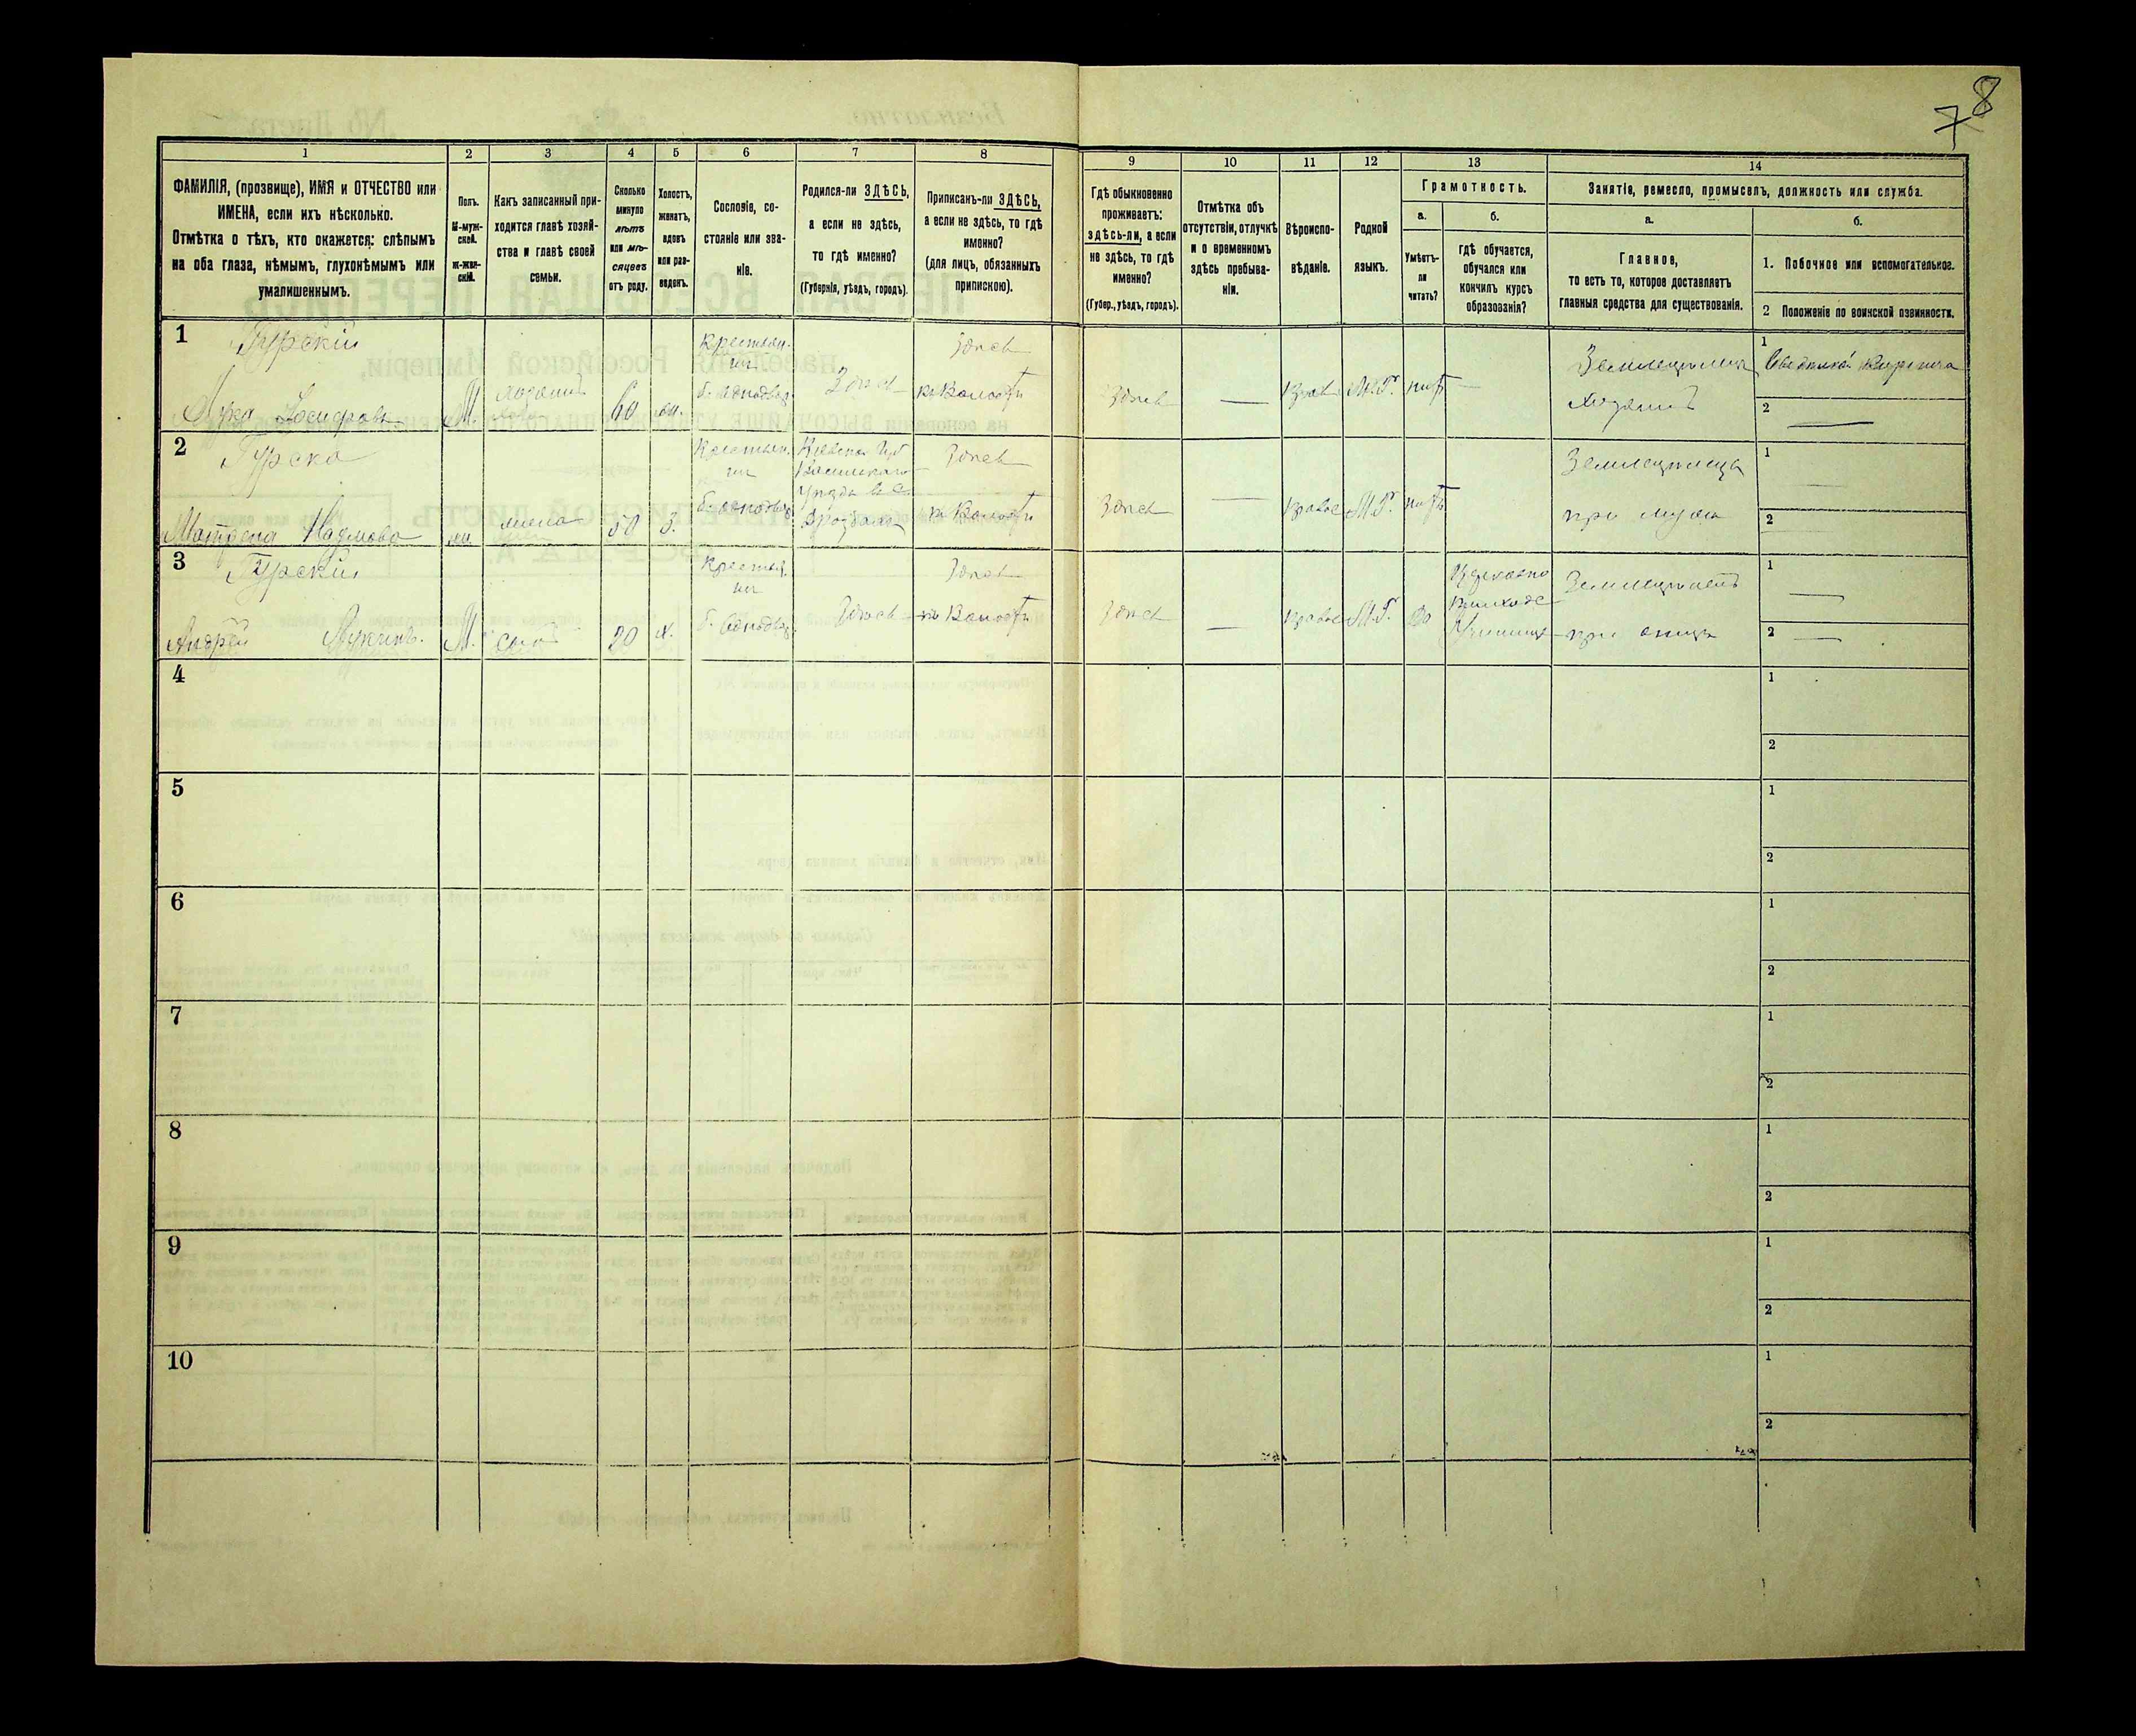 8
7
1
2
3
4
5
6
7
8
9
10
11
12
13
14
ФАМИЛІЯ, (прозвище), ИМЯ и ОТЧЕСТВО или
ИМЕНА, если ихъ нѣсколько.
Отмѣтка о тѣхъ, кто окажется: слѣпымъ
на оба глаза, нѣмымъ, глухонѣмымъ или
умалишеннымъ.
Полъ.
М-муж-
ской.
Ж-жен-
скій.
Какъ записанный при-
ходится главѣ хозяй-
ства и главѣ своей
семьи.
Сколько
минуло
лѣтъ
или мѣ-
сяцевъ
отъ роду.
Холостъ,
женатъ,
вдовъ
или раз-
веденъ.
Сословіе, со-
стояніе или зва-
ніе.
Родился-ли ЗДѢСЬ,
а если не здѣсь,
то гдѣ именно?
(Губернія, уѣздъ, городъ).
Приписанъ-ли ЗДѢСЬ,
а если не здѣсь, то гдѣ
именно?
(для лицъ, обязанныхъ
припискою).
Гдѣ обыкновенно
проживаетъ:
здѣсь-ли, а если
не здѣсь, то гдѣ
именно?
(Губер., уѣздъ, городъ).
Отмѣтка объ
отсутствіи, отлучкѣ
и о временномъ
здѣсь пребыва-
ніи.
Вѣроиспо-
вѣданіе.
Родной
языкъ.
Грамотность.
а.
Умѣетъ-
ли
читать?
б.
гдѣ обучается,
обучался или
кончилъ курсъ
образованія?
Занятіе, ремесло, промыселъ, должность или служба.
а.
Главное,
то есть то, которое доставляетъ
главныя средства для существованія.
б.
1. Побочное или вспомогательное.
2 Положеніе по воинской повинности.
1
Гурскій
Лука
М.
хозяинъ
60
Крестьян.
б. Однодвор.
Здѣсь
Здѣсь
въ Волости
Здѣсь
—
Прав.
М.Р.
нѣтъ
—
Хозяинъ
1
2
—
2
Гурска
Матрена Наумова
ж.
жена
50
З.
Крестьян.
б. однодвор.
Кіевская Губ
Уѣзда
Здѣсь
въ Волости
Здѣсь
—
Право
М.Р.
нѣтъ
при мужѣ
1
—
2
3
Гурскій
Андрей Лукинъ.
М.
сынъ
20
х.
Крестьян.
б. Однодвор.
Здѣсь
Здѣсь
въ Волости
Здѣсь
—
Право
М.Р.
Да
Церковно
Приходс
при отцѣ
1
—
2
—
4
1
2
5
1
2
6
1
2
7
1
2
8
1
2
9
1
2
10
1
2